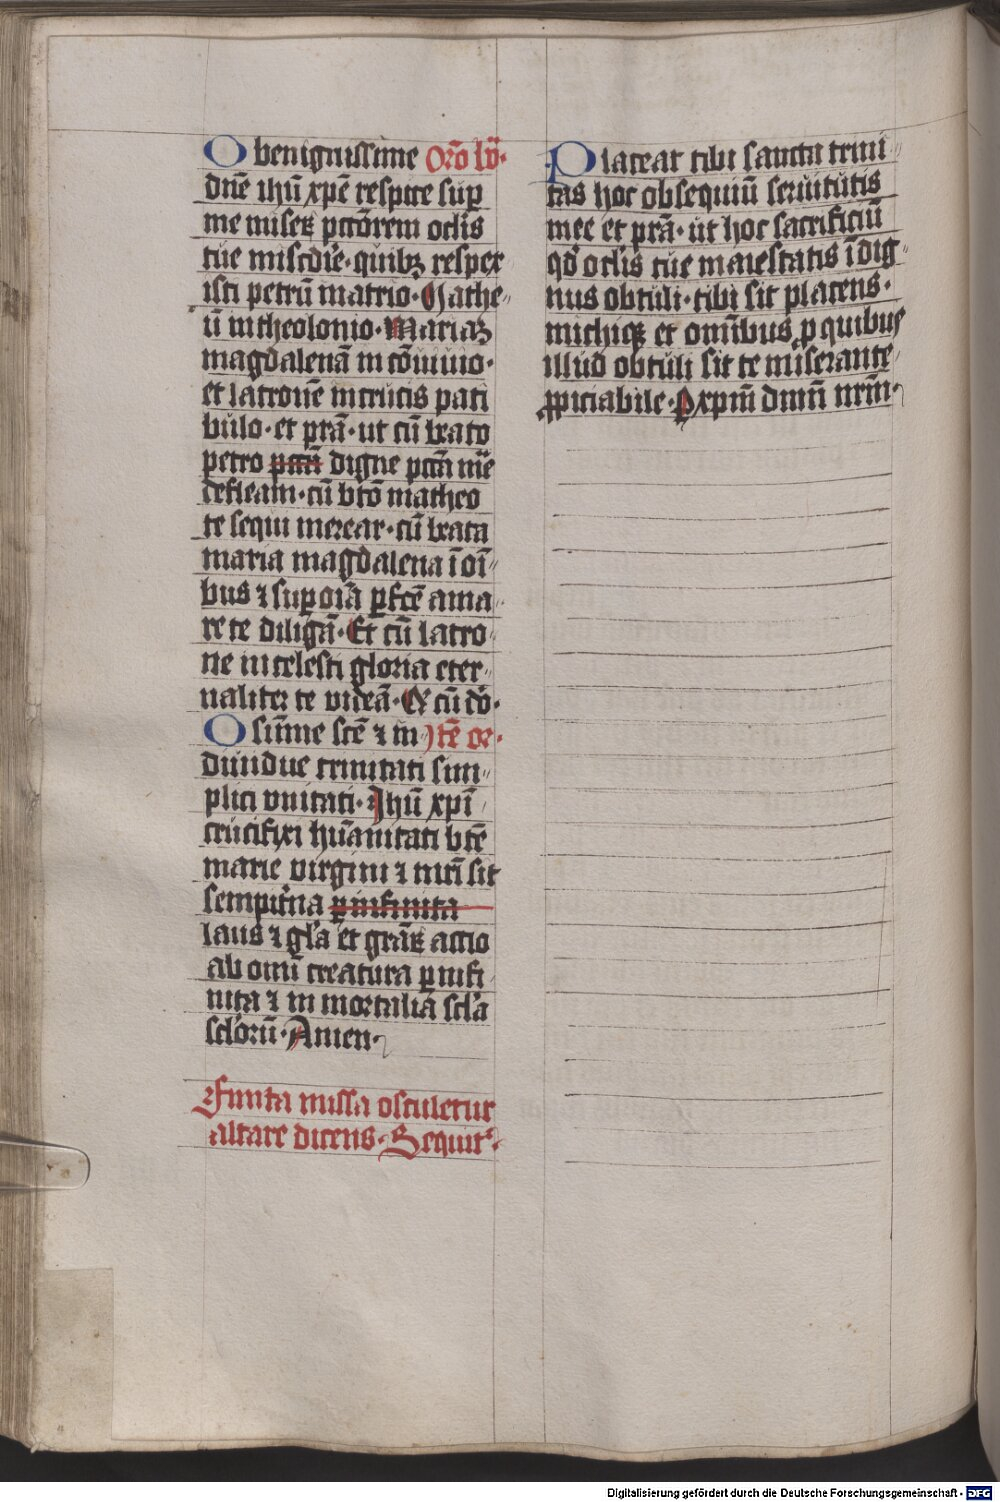 O benignissime Orō bo̅·
dnē ihū xpē respice suꝑ
me miseꝝ pctōrem oclis
tue miscdie· quibꝫ respex
isti petrū in atrio· Mathe
ū in theolonio· Mariaꝫ
magdalenā in cōuiuio·
et latronē in crucis pati
bulo· et prā· ut cū beato
petro pctū digne pctā mē
defleam· cū btō matheo
te sequi merear· cū beata
maria magdalena ī oī
bus ⁊ suꝑ oīa ꝑfcē ama
re te diligā· Et cū latro
ne in celesti gloria eter
naliter te videā· Qͥ cū dō·
O sūme scē ⁊ in Itē or·
diuidue trinitati sim
plici vnitati· Ihū xpī
crucifixi hūanitati btē
marie virgini ⁊ mrī sit
sempitna ꝑ infinita
laus ⁊ gla et graꝝ actio
ab omī creatura ꝑ infi
nita ⁊ in mortalia scla
sclorū· Amen·
Finita missa osculetur
altare dicens· Sequit·
Placeat tibi sancta trini
tas hoc obsequiū seruitutis
mee et prā· ut hoc sacrificiū
qd oclis tue maiestatis īdig
nus obtuli· tibi sit placens·
michiqꝫ et omībus ꝑ quibus
illud obtuli sit te miserante
ꝓpiciabile· P xpm̄ dnm̄ nrm̄·
Digitalisierung gefördert durch die Deutsche Forschungsgemeinschaft - DFG